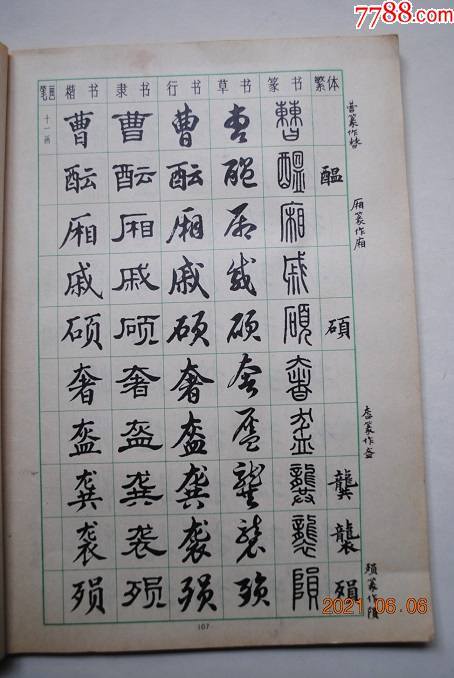 7788.com
笔画 楷书 隶书 行书 草书 篆书 繁体
十一画 曹 曹 曹 曹 曹
酝 酝 酝 酝 醖 醖
厢 厢 厢 厢 廂
戚 戚 戚 戚 戚
硕 硕 硕 硕 碩 碩
奢 奢 奢 奢 奢
盔 盔 盔 盔 盔
龚 龚 龚 龚 龔 龔
袭 袭 袭 袭 襲 襲
殒 殒 殒 殒 隕 殞
曹篆作
厢篆作廂
盔篆作
殞篆作隕
107
2021.06.06